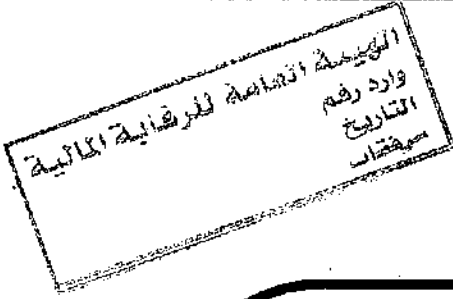 الهيئة العامة للرقابة المالية
وارد رقم
التاريخ
مرفقات